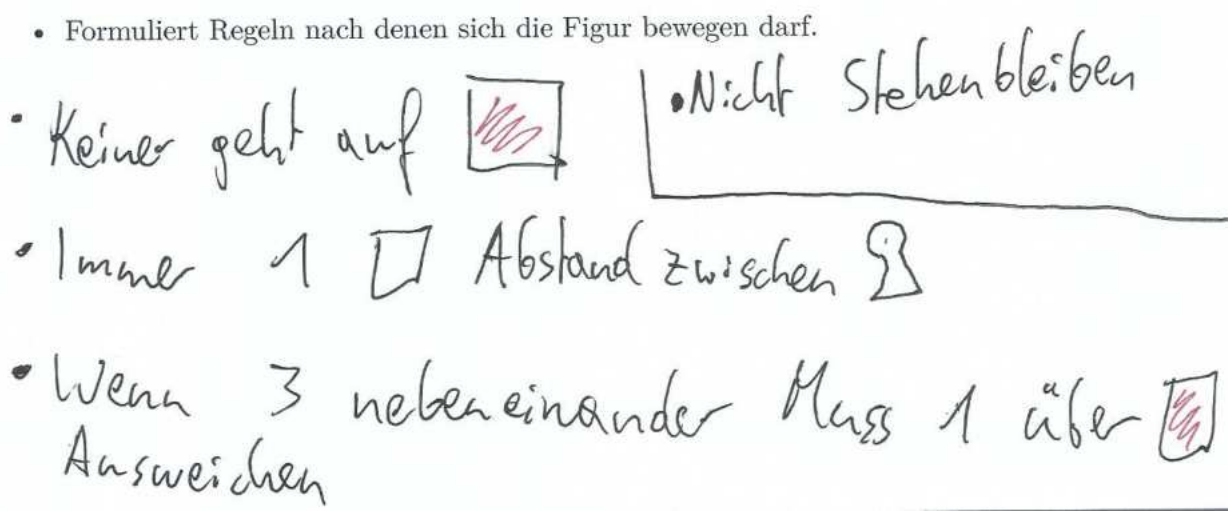 • Formuliert Regeln nach denen sich die Figur bewegen darf.
• Keiner geht auf
• Nicht Stehenbleiben
• Immer 1 Abstand zwischen
• Wenn 3 nebeneinander Muss 1 über
Ausweichen